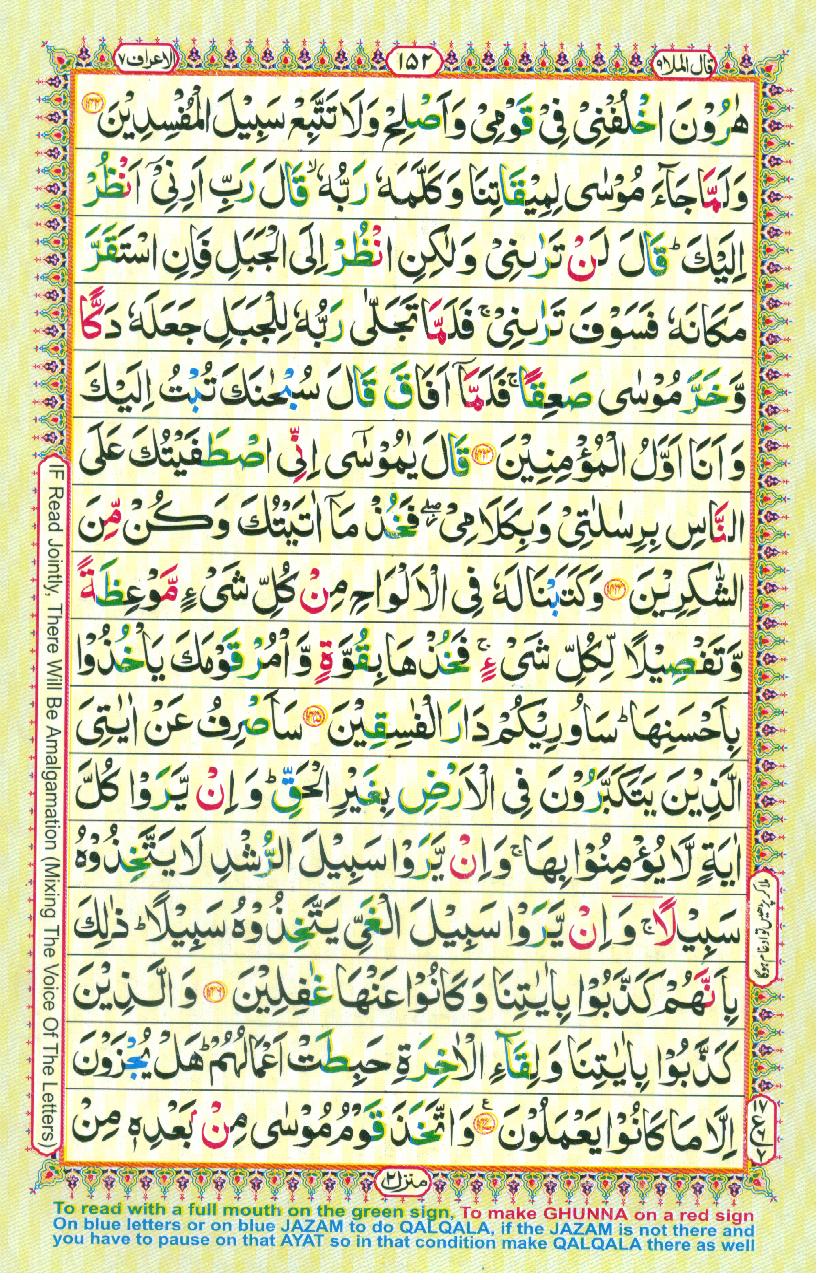 قال الملا ٩
١٥٢
الاعراف ٧
هٰرُوْنَ اخْلُفْنِیْ فِیْ قَوْمِیْ وَاَصْلِحْ وَلَا تَتَّبِعْ سَبِیْلَ الْمُفْسِدِیْنَ ﴿۱۴۲﴾
وَلَمَّا جَآءَ مُوْسٰی لِمِیْقَاتِنَا وَكَلَّمَهٗ رَبُّهٗ ۙ قَالَ رَبِّ اَرِنِیْۤ اَنْظُرْ
اِلَیْكَ ؕ قَالَ لَنْ تَرٰىنِیْ وَلٰكِنِ انْظُرْ اِلَی الْجَبَلِ فَاِنِ اسْتَقَرَّ
مَكَانَهٗ فَسَوْفَ تَرٰىنِیْ ۚ فَلَمَّا تَجَلّٰی رَبُّهٗ لِلْجَبَلِ جَعَلَهٗ دَكًّا
وَّخَرَّ مُوْسٰی صَعِقًا ۚ فَلَمَّاۤ اَفَاقَ قَالَ سُبْحٰنَكَ تُبْتُ اِلَیْكَ
وَاَنَا اَوَّلُ الْمُؤْمِنِیْنَ ﴿۱۴۳﴾ قَالَ یٰمُوْسٰۤی اِنِّی اصْطَفَیْتُكَ عَلَی
النَّاسِ بِرِسٰلٰتِیْ وَبِكَلَامِیْ ۖ فَخُذْ مَاۤ اٰتَیْتُكَ وَكُنْ مِّنَ
الشّٰكِرِیْنَ ﴿۱۴۴﴾ وَكَتَبْنَا لَهٗ فِی الْاَلْوَاحِ مِنْ كُلِّ شَیْءٍ مَّوْعِظَةً
وَّتَفْصِیْلًا لِّكُلِّ شَیْءٍ ۚ فَخُذْهَا بِقُوَّةٍ وَّاْمُرْ قَوْمَكَ یَاْخُذُوْا
بِاَحْسَنِهَا ؕ سَاُورِیْكُمْ دَارَ الْفٰسِقِیْنَ ﴿۱۴۵﴾ سَاَصْرِفُ عَنْ اٰیٰتِیَ
الَّذِیْنَ یَتَكَبَّرُوْنَ فِی الْاَرْضِ بِغَیْرِ الْحَقِّ ؕ وَاِنْ یَّرَوْا كُلَّ
اٰیَةٍ لَّا یُؤْمِنُوْا بِهَا ۚ وَاِنْ یَّرَوْا سَبِیْلَ الرُّشْدِ لَا یَتَّخِذُوْهُ
سَبِیْلًا ۚ وَاِنْ یَّرَوْا سَبِیْلَ الْغَیِّ یَتَّخِذُوْهُ سَبِیْلًا ؕ ذٰلِكَ
بِاَنَّهُمْ كَذَّبُوْا بِاٰیٰتِنَا وَكَانُوْا عَنْهَا غٰفِلِیْنَ ﴿۱۴۶﴾ وَالَّذِیْنَ
كَذَّبُوْا بِاٰیٰتِنَا وَلِقَآءِ الْاٰخِرَةِ حَبِطَتْ اَعْمَالُهُمْ ؕ هَلْ یُجْزَوْنَ
اِلَّا مَا كَانُوْا یَعْمَلُوْنَ ﴿۱۴۷﴾ ع وَاتَّخَذَ قَوْمُ مُوْسٰی مِنْۢ بَعْدِهٖ مِنْ
منزل ٢
IF Read Jointly, There Will Be Amalgamation (Mixing The Voice Of The Letters)
To read with a full mouth on the green sign, To make GHUNNA on a red sign
On blue letters or on blue JAZAM to do QALQALA, if the JAZAM is not there and
you have to pause on that AYAT so in that condition make QALQALA there as well